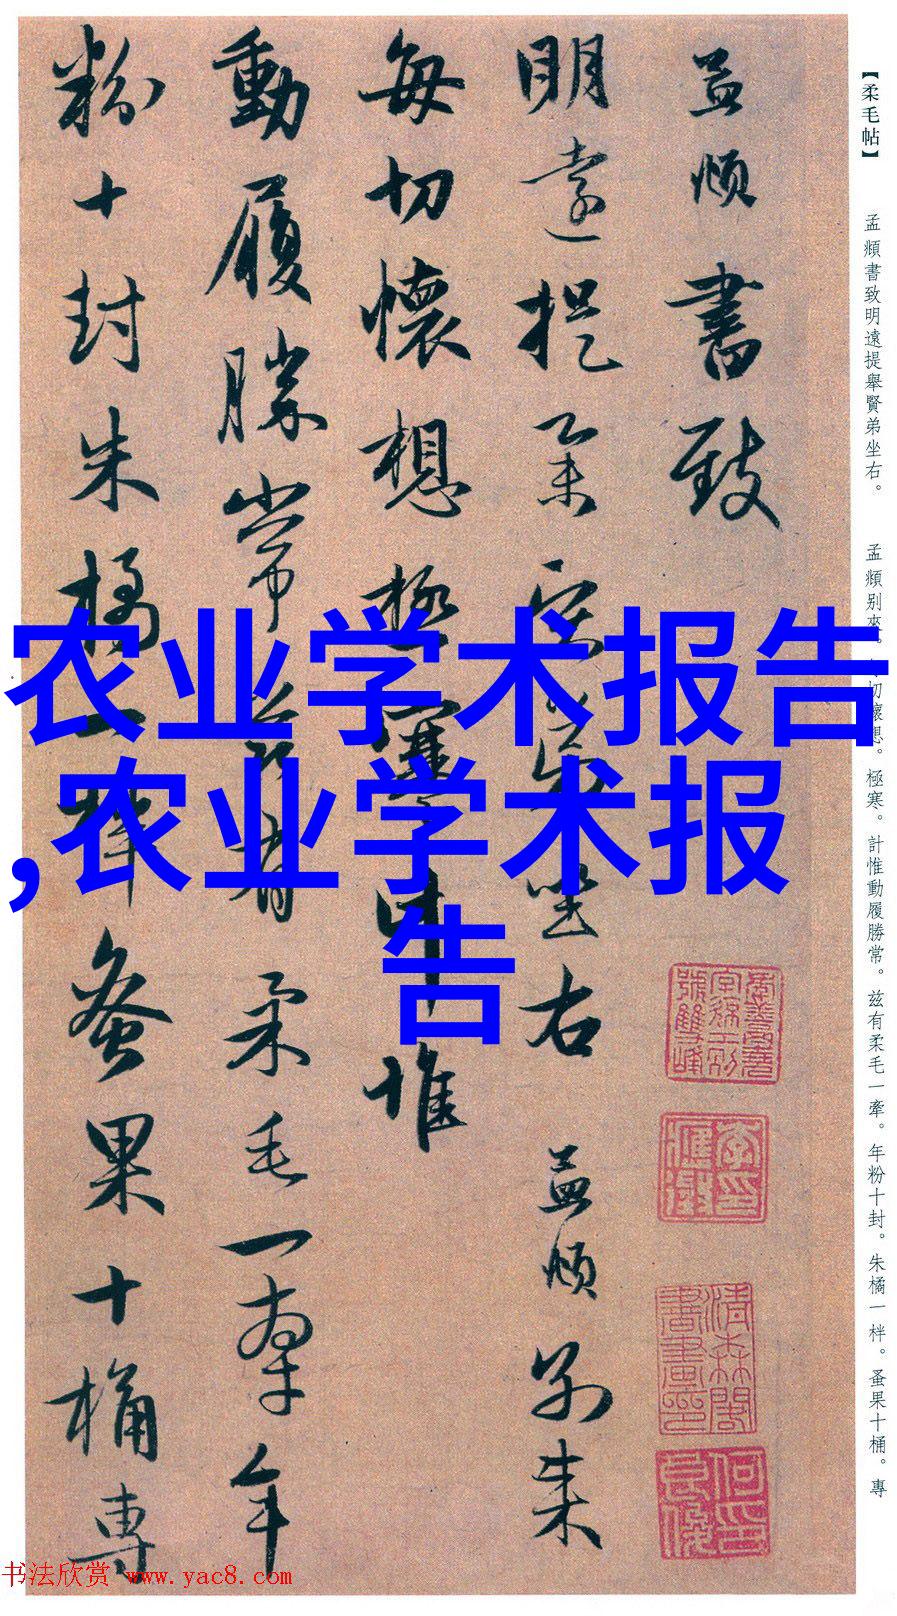 【柔毛帖】
孟頫書致明遠提舉賢弟坐右。
孟頫别來。每切懷想。極寒。計惟動履勝常。兹有柔毛一牽。年粉十封。朱橘一柈。蚤果十桶。專
孟頫書致
明遠提舉賢弟坐右 孟頫別來
每切懷想極寒計惟
動履勝常兹有柔毛一牽年
粉十封朱橘一柈蚤果十桶專
农业学术报告
,农业学术报
告
书法欣赏 www.yac8.com